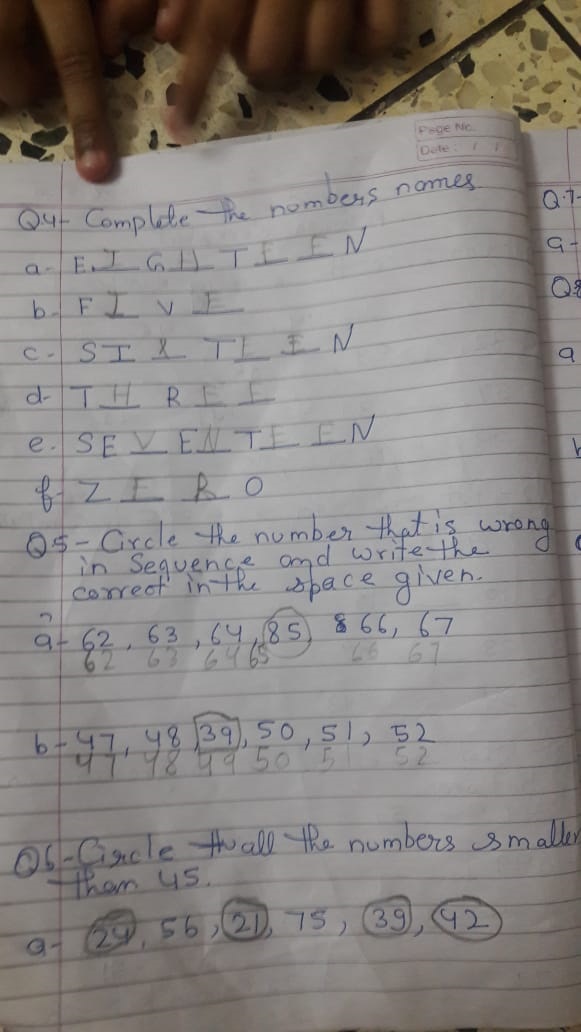 Page No.
Date: / /
Q4- Complete the numbers names
a- E I G H T E E N
b- F I V E
c- S I X T E E N
d- T H R E E
e. S E V E N T E E N
f- Z E R O
Q5- Circle the number that is wrong
in Sequence and write the
correct in the space given.
a- 62, 63, 64, 85, 66, 67
62 63 64 65 66 67
b- 47, 48, 39, 50, 51, 52
47 48 49 50 51 52
Q6- Circle all the numbers smaller
than 45.
a- 24, 56, 21, 75, 39, 42
Q.7-
a-
Q8
a